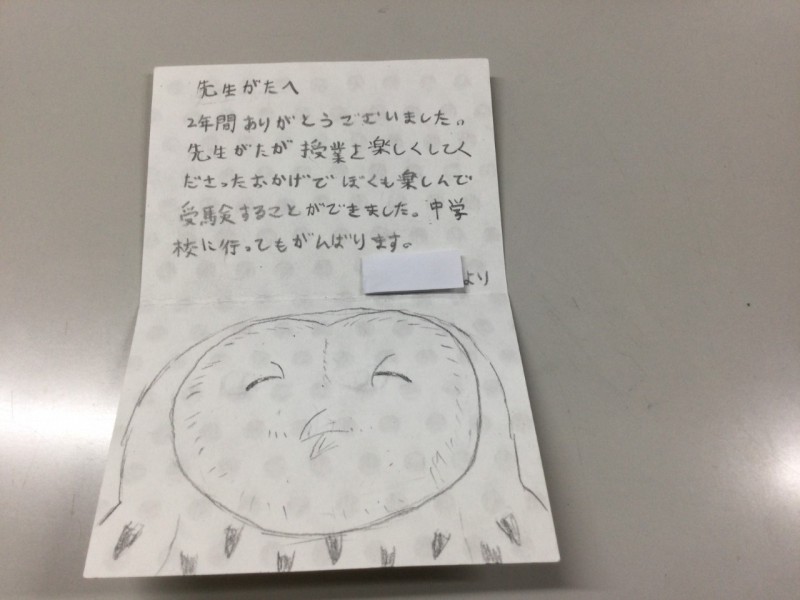 先生がたへ
2年間ありがとうございました。
先生がたが授業を楽しくしてく
ださったおかげでぼくも楽しんで
受験することができました。中学
校に行ってもがんばります。
より